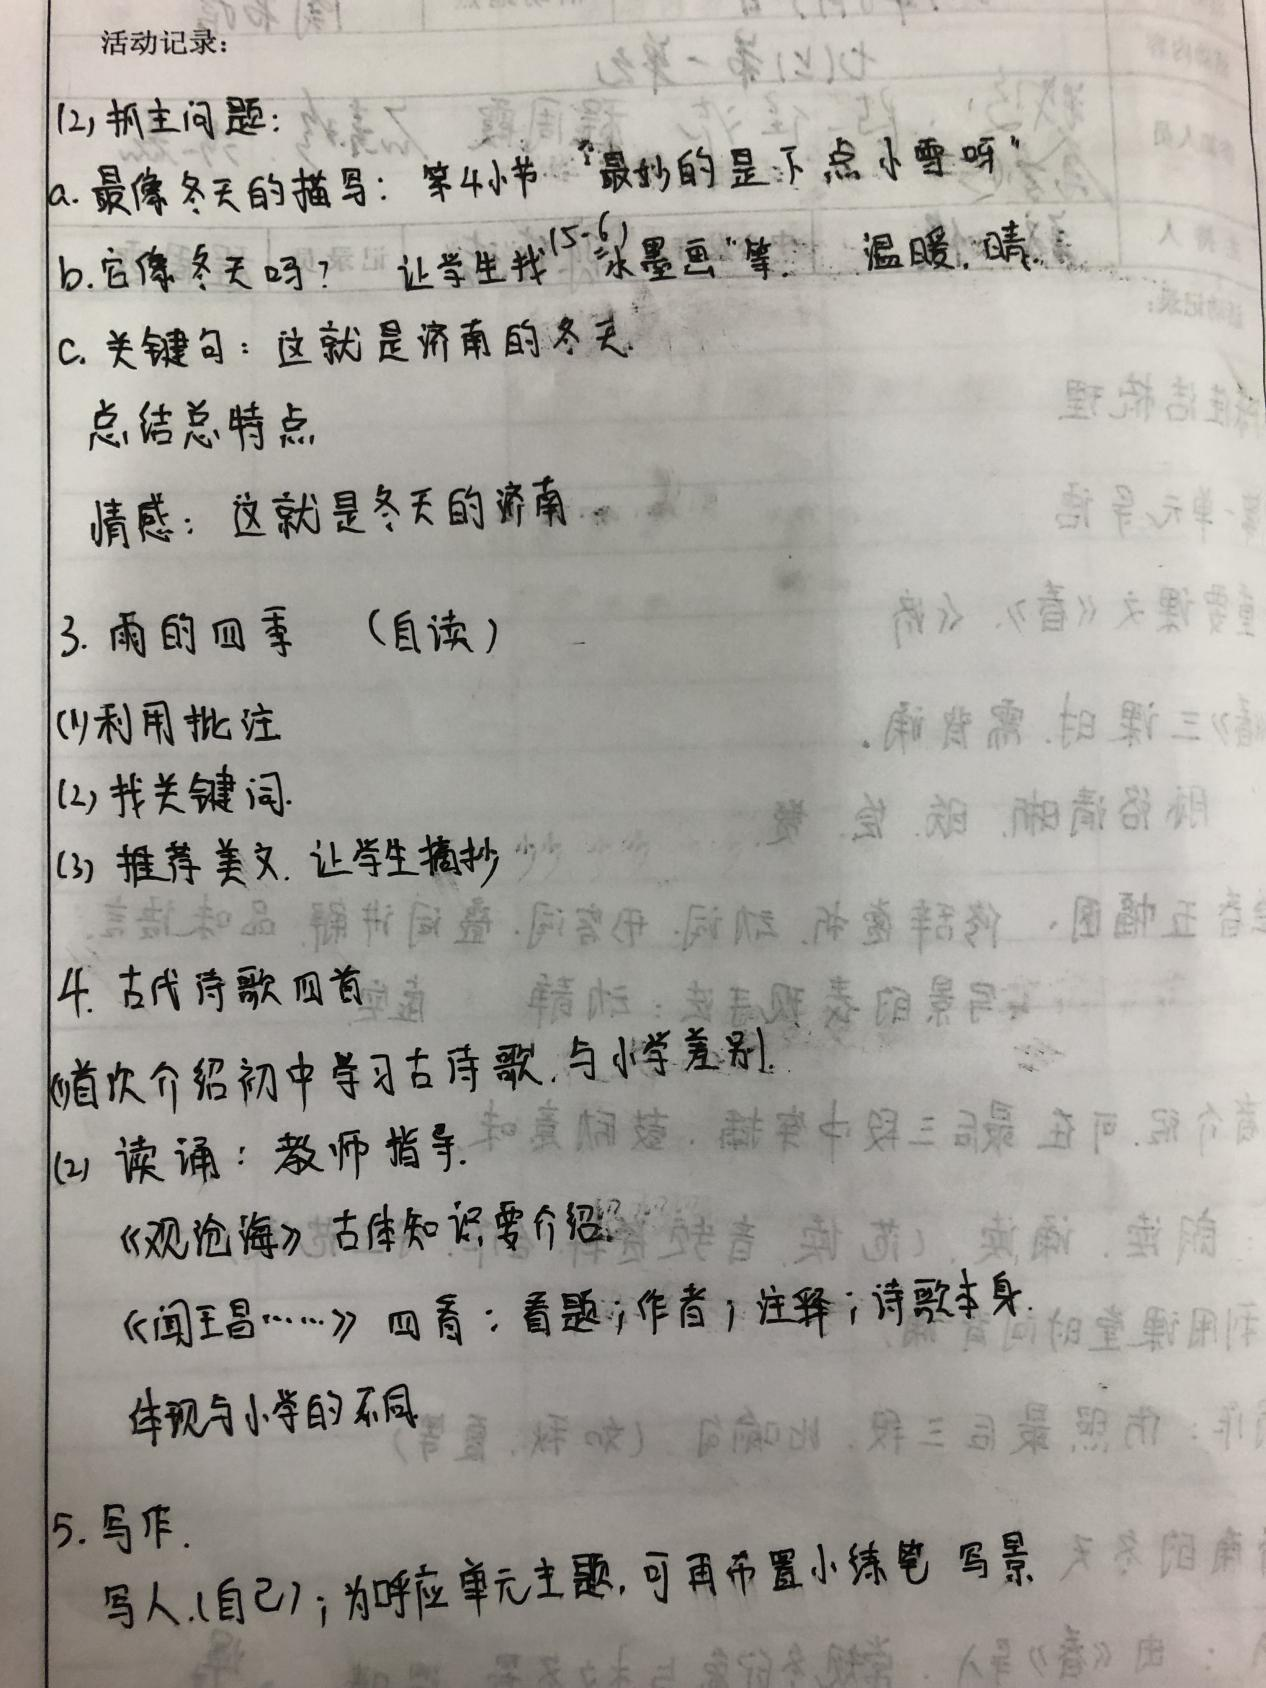 活动记录：
(2) 抓主问题：
a. 最像冬天的描写：第4小节 "最妙的是下点小雪呀"
b. 它像冬天吗？ 让学生找(5-6)"水墨画"等. 温暖.晴.
c. 关键句：这就是济南的冬天.
总结总特点
情感：这就是冬天的济南.
3. 雨的四季 （自读）
(1) 利用批注
(2) 找关键词.
(3) 推荐美文. 让学生摘抄
4. 古代诗歌四首
(1) 首次介绍初中学习古诗歌.与小学差别.
(2) 读诵：教师指导.
《观沧海》古体知识要介绍.
《闻王昌……》 四看：看题；作者；注释；诗歌本身.
体现与小学的不同
5. 写作.
写人.(自己)；为呼应单元主题，可再布置小练笔 写景